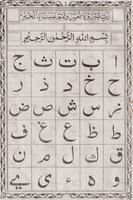 بِسْمِ اللهِ الرَّحْمٰنِ الرَّحِيْمِ
ا ب ت ث ج
ح خ د ذ ر
ز س ش ص ض
ط ظ ع غ ف
ق ك ل م ن
و ه ء ي ے